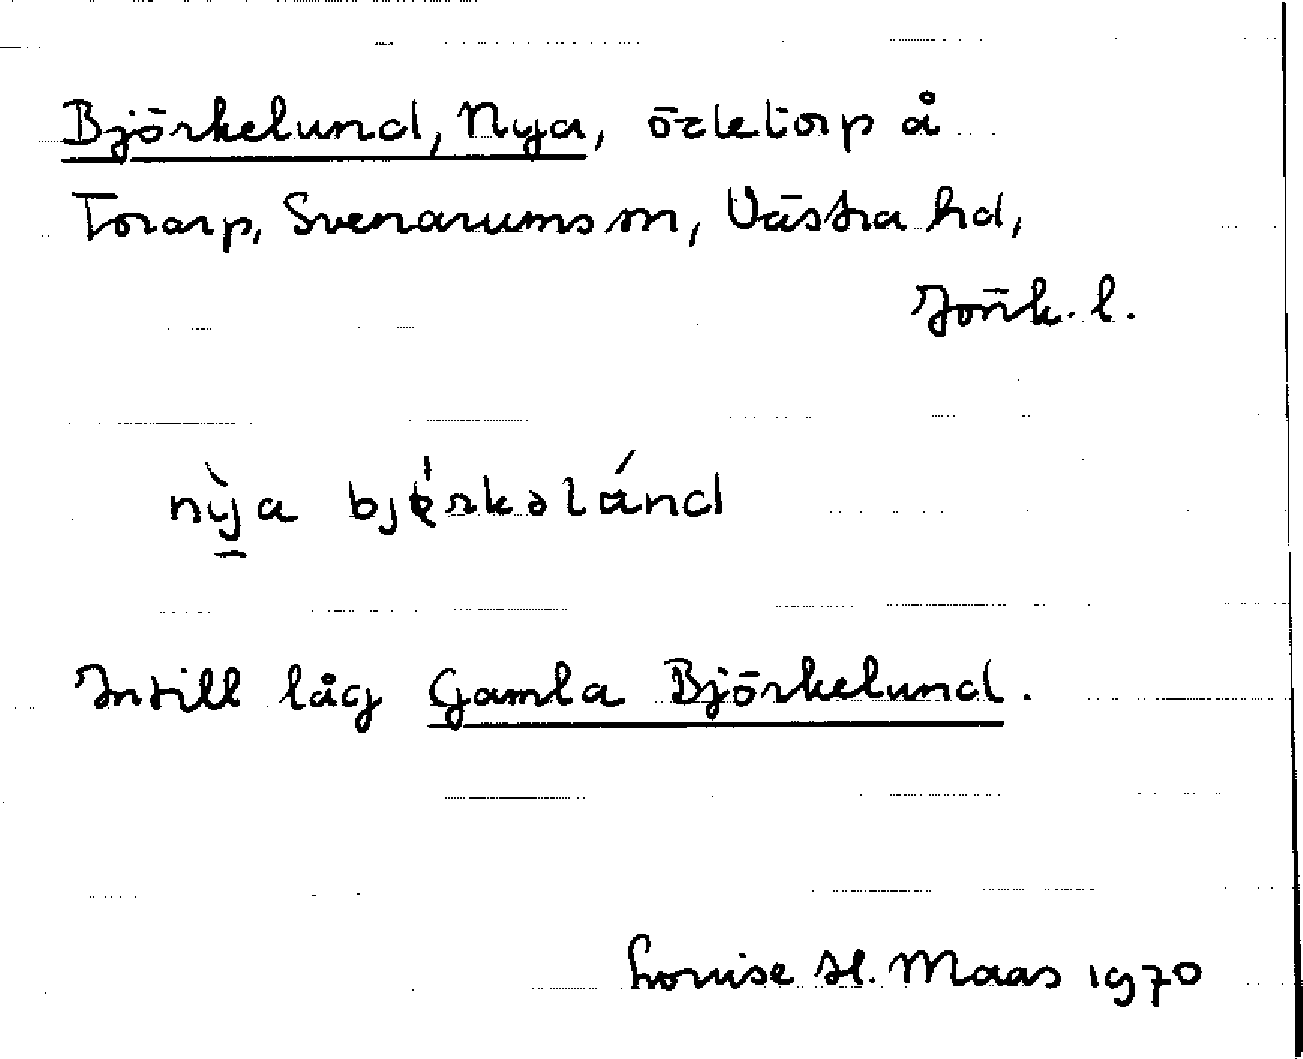 Björkelund, Nya, ödetorp å
Torarp, Svenarums sn, Västra hd,
Jönk. l.
nỳa bjɵ́rkəlánd
Intill låg Gamla Björkelund.
Louise H. Maas 1970